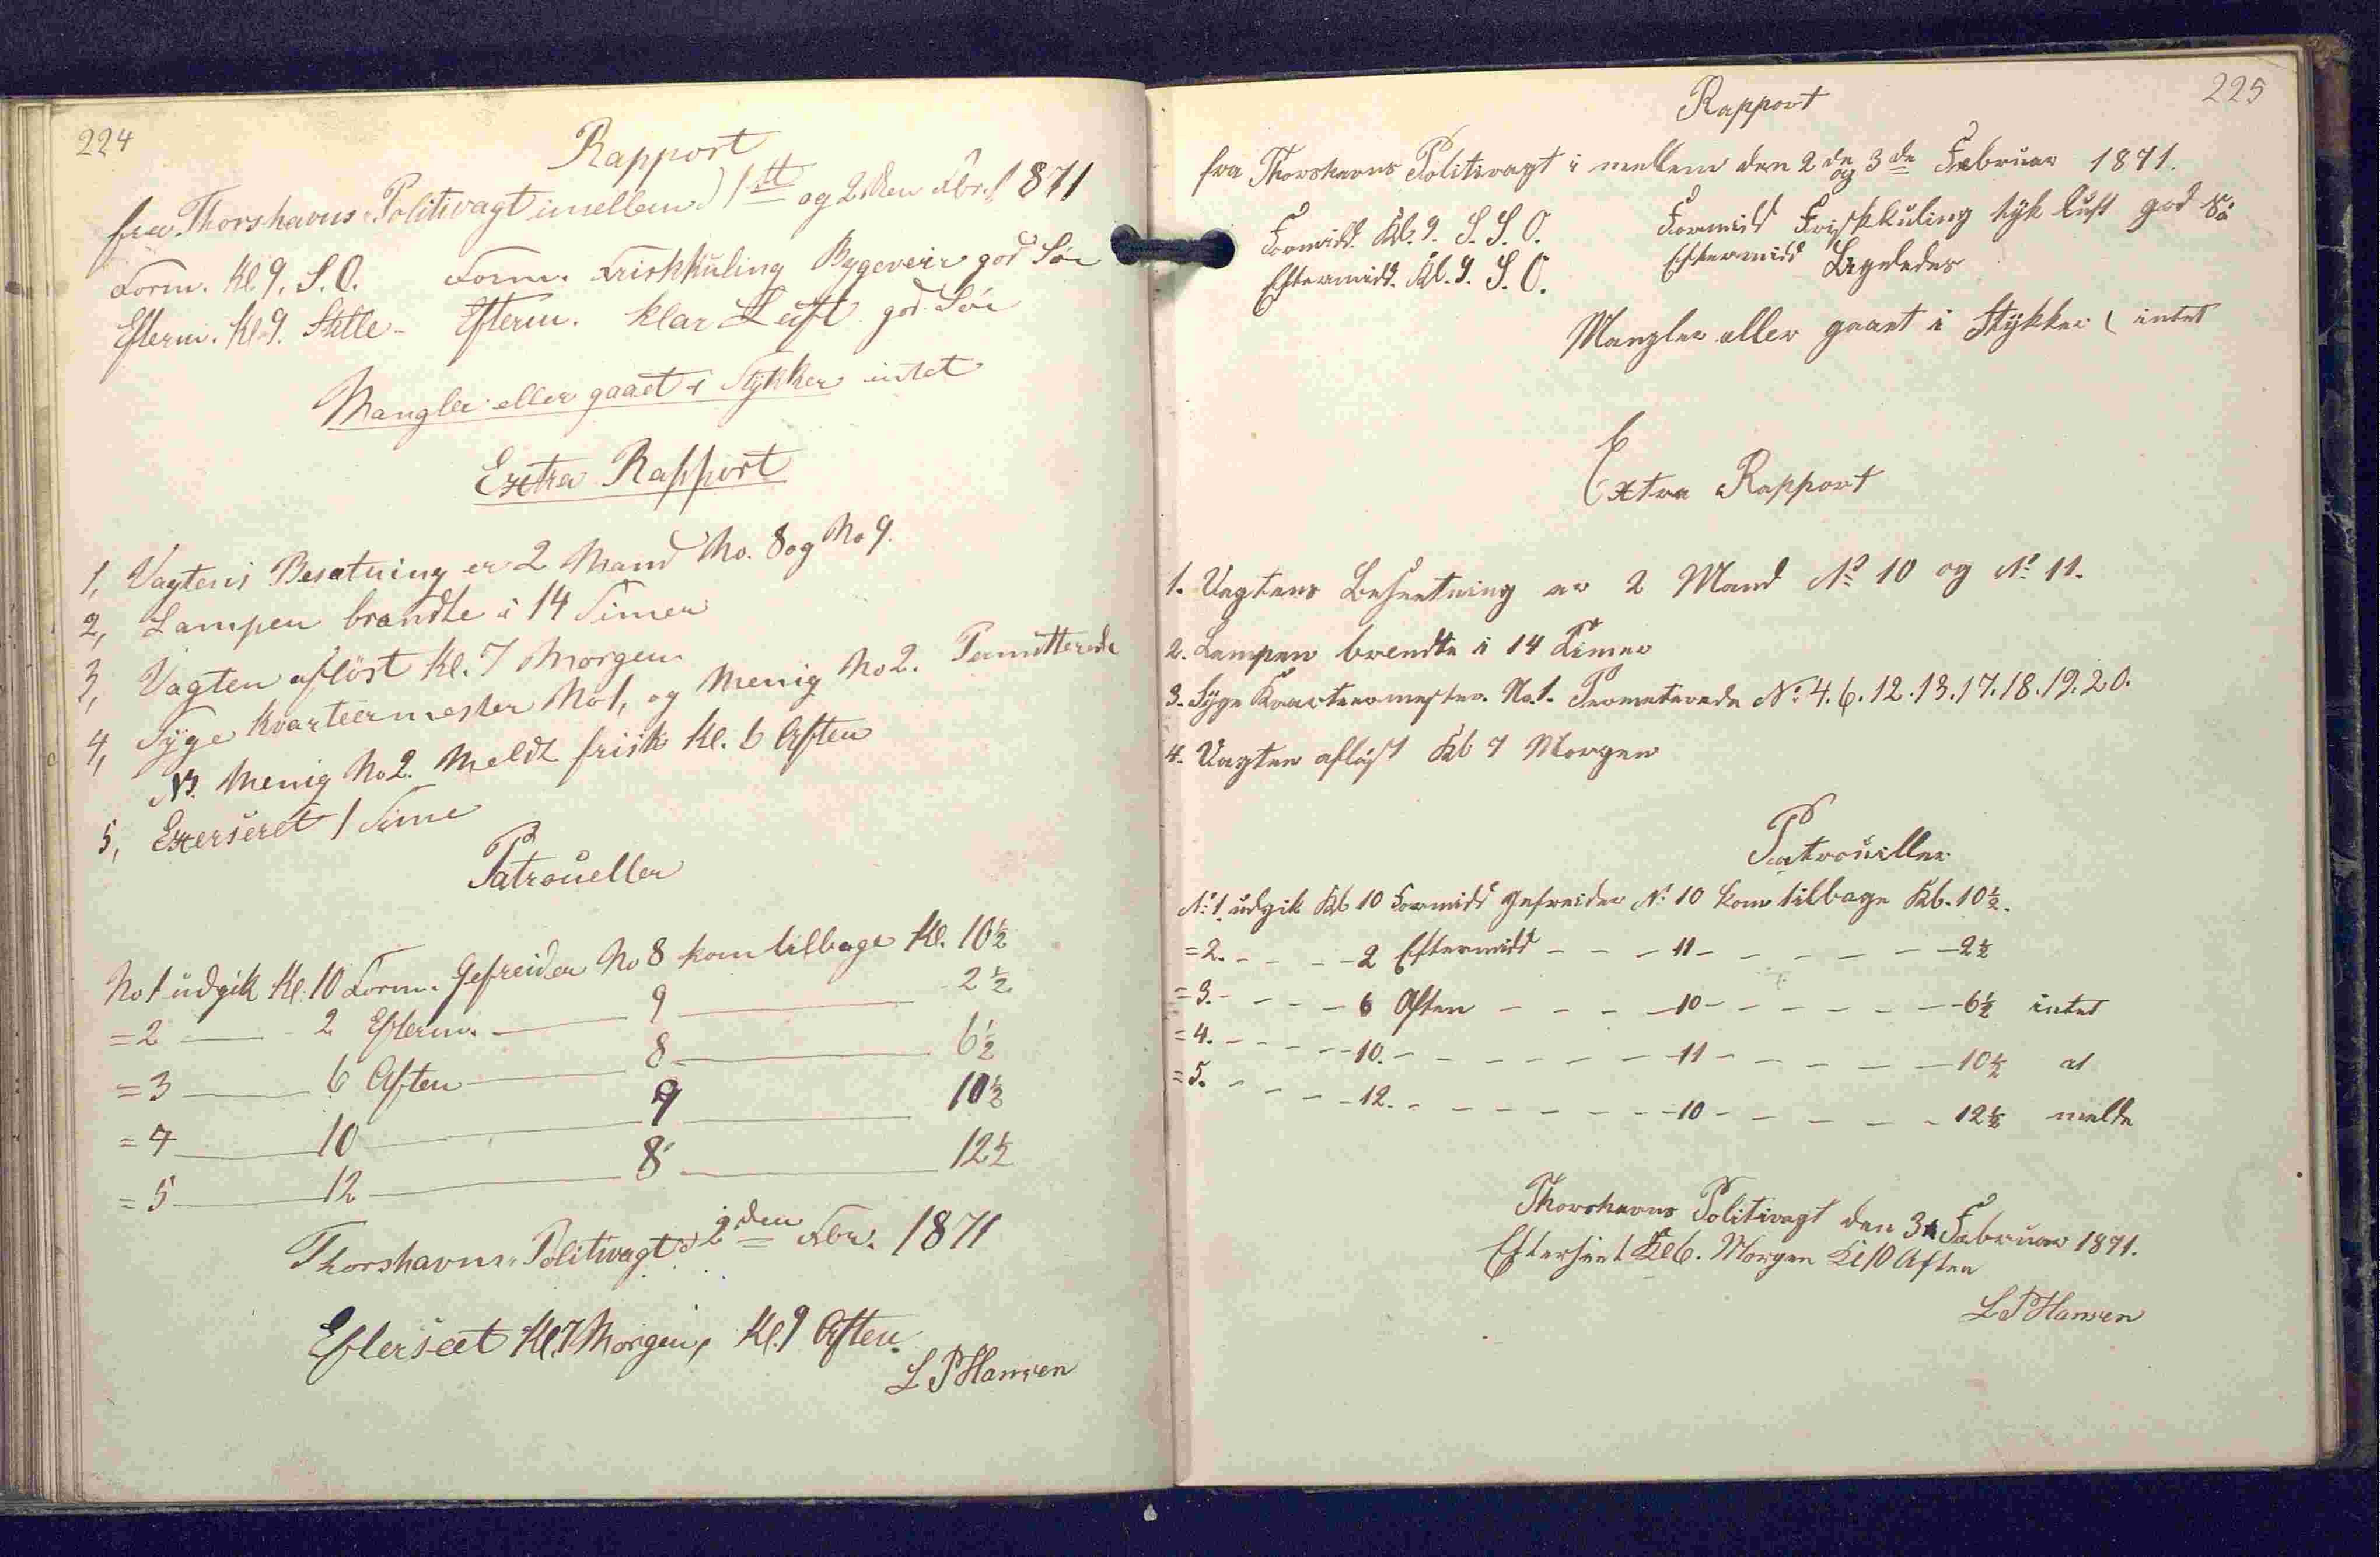 224
Rapport
fra Thorshavns Politivagt imellem d 1ste og 2den Fbr. 1871
Form. Kl 9. S.O. Form. Friskkuling Bygeveir god Söe
Efterm. Kl 9. Stille - Efterm. klar Luft god Söe
Mangler eller gaaet i Stykker intet
Extra Rapport
1, Vagtens Besætning er 2 Mand No. 8 og No 9.
2, Lampen brændte i 14 Timer
3, Vagten aflöst Kl. 7 Morgen
4, Syge Kvarteermester No 1, og Menig No 2. Permitterede
NB. Menig No 2. Meldt frisk Kl. 6 Aften
5, Exerseret 1 Time
Patroueller
No 1 udgik Kl. 10 Form. Gefreider No 8 kom tilbage Kl. 10½
=2 — 2 Efterm. — 9 — 2½
=3 — 6 Aften — 8 — 6½
=4 — 10 — 9 — 10½
=5 — 12 — 8 — 12½
Thorshavns Politivagt d 2den Fbr. 1871
Efterseet Kl. 7 Morgen, Kl. 9 Aften.
L P Hansen
225
Rapport
fra Thorshavns Politivagt i mellem den 2de og 3de Februar 1871.
Formidd. Kl. 9. S. S. O. Formidd Friskkuling tyk luft god Sö
Eftermidd. Kl. 9. S. O. Eftermidd Ligeledes
Mangler eller gaaet i Stykker ( intet
Extra Rapport
1. Vagtens Besætning er 2 Mand No 10 og No 11.
2. Lampen brendte i 14 Timer
3. Syge Kvarteermester. No. 1. Permeterede No: 4. 6. 12. 13. 17. 18. 19. 20.
4. Vagten aflöst Kl 7 Morgen
Patrouiller
No: 1. udgik Kl 10 Formidd Gefreider No: 10 kom tilbage Kl. 10½.
=2. - - - - 2 Eftermidd - - - 11 - - - - - - 2½
=3. - - - - 6 Aften - - - - 10 - - - - - - 6½ intet
=4. - - - - 10. - - - - - - - 11 - - - - - - 10½ at
=5. - - - - 12. - - - - - - - 10 - - - - - - 12½ melde
Thorshavns Politivagt den 3 Februar 1871.
Efterseet Kl 6. Morgen Kl 10 Aften
L P Hansen